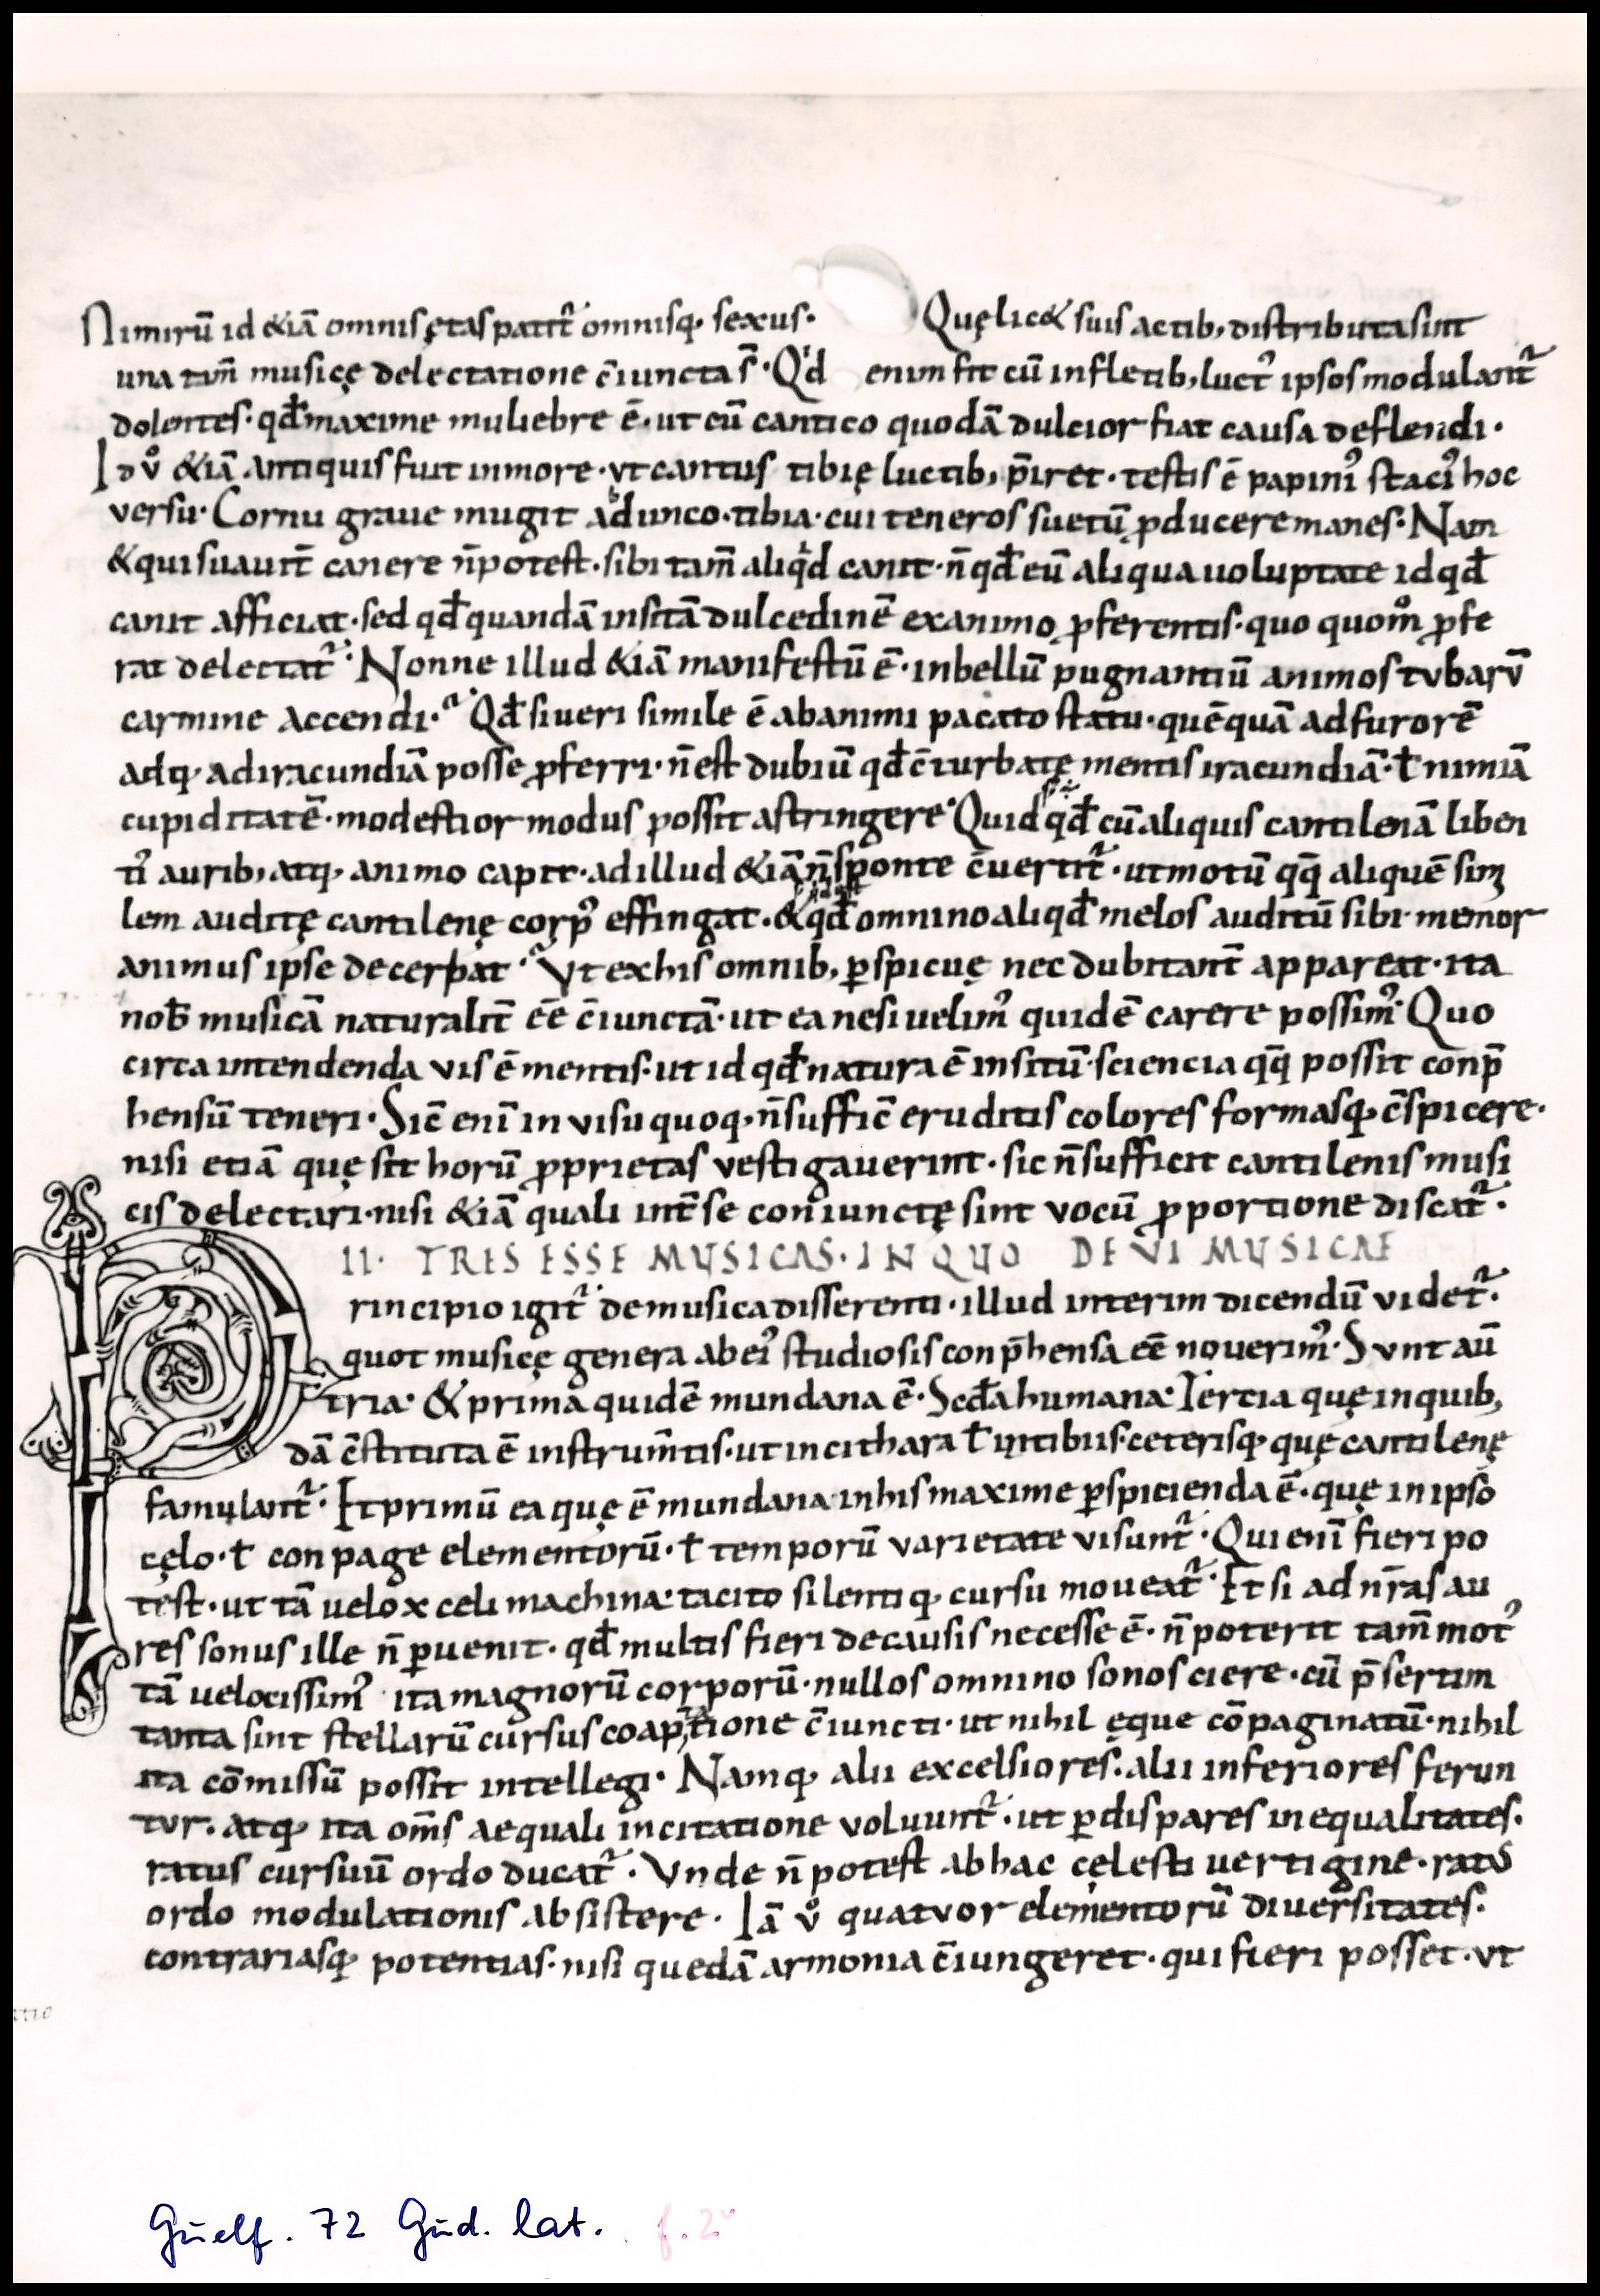 Nimirū id &iā omnis ętas patit᷑ omnisq; sexus. Quę lic& suis actib; distributa sint
una tam̄ musicę delectatione c̄iuncta s̄. Qͥd enim fit cū in fletib; luct᷒ ipsos modulant᷑
dolentes. qđ maxime muliebre ē. ut cū cantico quodā dulcior fiat causa deflendi.
Id v̊ &iā antiquis fuit in more. vt cantus tibię luctib; p̄iret. testis ē papini᷒ staci᷒ hoc
versu. Cornu graue mugit adunco. tibia. cui teneros suetū ꝓducere manes. Nam
& qui suauit̄ canere n̄ potest. sibi tam̄ aliqͥd canit. n̄ qđ eū aliqua uoluptate id qđ
canit afficiat. sed qđ quandā insitā dulcedinē ex animo ꝓferentis. quo quom̊ ꝓfe
rat delectat᷑. Nonne illud &iā manifestū ē. in bellū pugnantiū animos tvbarv̄
carmine accendi. Qđ si ueri simile ē ab animi pacato statu. quēquā ad furorē
adq; ad iracundiā posse ꝓferri. n̄ est dubiū qđ c̄turbatę mentis iracundiā. ł nimiā
cupiditatē. modestior modus possit astringere. Quid qđ cū aliquis cantilenā liben
ti᷒ aurib; atq; animo capit. ad illud &iā n̄ sponte c̄uertit᷑. ut motū qq̄ aliquē simi
lem auditę cantilenę corp᷒ effingat. & qđ omnino aliqđ melos auditū sibi memor
animus ipse decerpat. Vt ex his omnib; ꝑspicuę nec dubitant̄ appareat. ita
nob̄ musicā naturalit̄ ēē c̄iunctā. ut ea nesi uelim᷒ quidē carere possim᷒. Quo
circa intendenda vis ē mentis. ut id qđ natura ē insitū. sciencia qq̄ possit conp̄
hensū teneri. Sic̄ eni̅ in visu quoq; n̄ suffic̄ eruditis colores formasq; c̄spicere.
nisi etiā quę sit horū ꝓprietas vestigauerint. sic n̄ sufficit cantilenis musi
cis delectari. nisi &iā quali int̄ se coniunctę sint vocū ꝓportione discat᷑.
II. TRES ESSE MUSICAS. IN QUO DE VI MUSICAE
Principio igit᷑ de musica disserenti. illud interim dicendū videt᷑.
quot musicę genera ab ei᷒ studiosis conp̄hensa ēē noverim᷒. Svnt aū
tria. & prima quidē mundana ē. Scđa humana. Tercia quę in quib;
dā c̄stituta ē instrum̄tis. ut in cithara ł in tibiis. ceterisq; quę cantilenę
famulant᷑. Et primū ea quę ē mundana in his maxime ꝑspicienda ē. quę in ipso
cęlo. ł conpage elementorū. ł temporū varietate visunt᷑. Qui eni̅ fieri po
test. ut tā uelox celi machina. tacito silentiq; cursu moueat᷑. Et si ad nr̄as au
res sonus ille n̄ ꝑuenit. qđ multis fieri de causis necesse ē. n̄ poterit tam̄ mot᷒
tā uelocissim᷒ ita magnorū corporū. nullos omnino sonos ciere. cū p̄sertim
tanta sint stellarū cursus coaptatione c̄iuncti. ut nihil ęque cōpaginatū. nihil
ita cōmissū possit intellegi. Namq; alii excelsiores. alii inferiores ferun
tvr. atq; ita om̄s aequali incitatione voluunt᷑. ut ꝑ dispares inequalitates.
ratus cursuū ordo ducat᷑. Vnde n̄ potest ab hac cęlesti uertigine. ratus
ordo modulationis absistere. Iā v̊ quatvor elementorū diuersitates.
contrariasq; potentias. nisi quedā armonia c̄iungeret. qui fieri posset. vt
Guelf. 72 Gud. lat. f. 2v